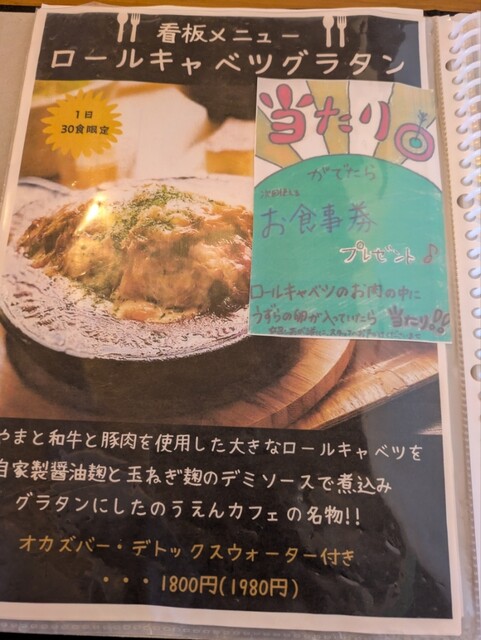 看板メニュー
ロールキャベツグラタン
1日
30食限定
当たり
がでたら
お食事券
プレゼント♪
ロールキャベツのお肉の中に
うずらの卵が入っていたら 当たり!!
やまと和牛と豚肉を使用した大きなロールキャベツを
自家製醤油麹と玉ねぎ麹のデミソースで煮込み
グラタンにしたのうえんカフェの名物!!
オカズバー・デトックスウォーター付き
・・・1800円(1980円)